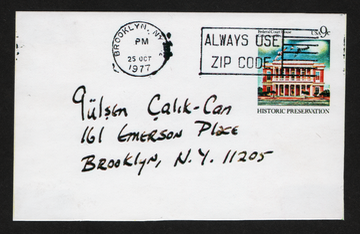 BROOKLYN, NY
PM
25 OCT
1977
ALWAYS USE
ZIP CODE
Federal Court House
USA 9c
HISTORIC PRESERVATION
Gülsen Çalik-Can
161 EMERSON PLACE
BROOKLYN, N.Y. 11205